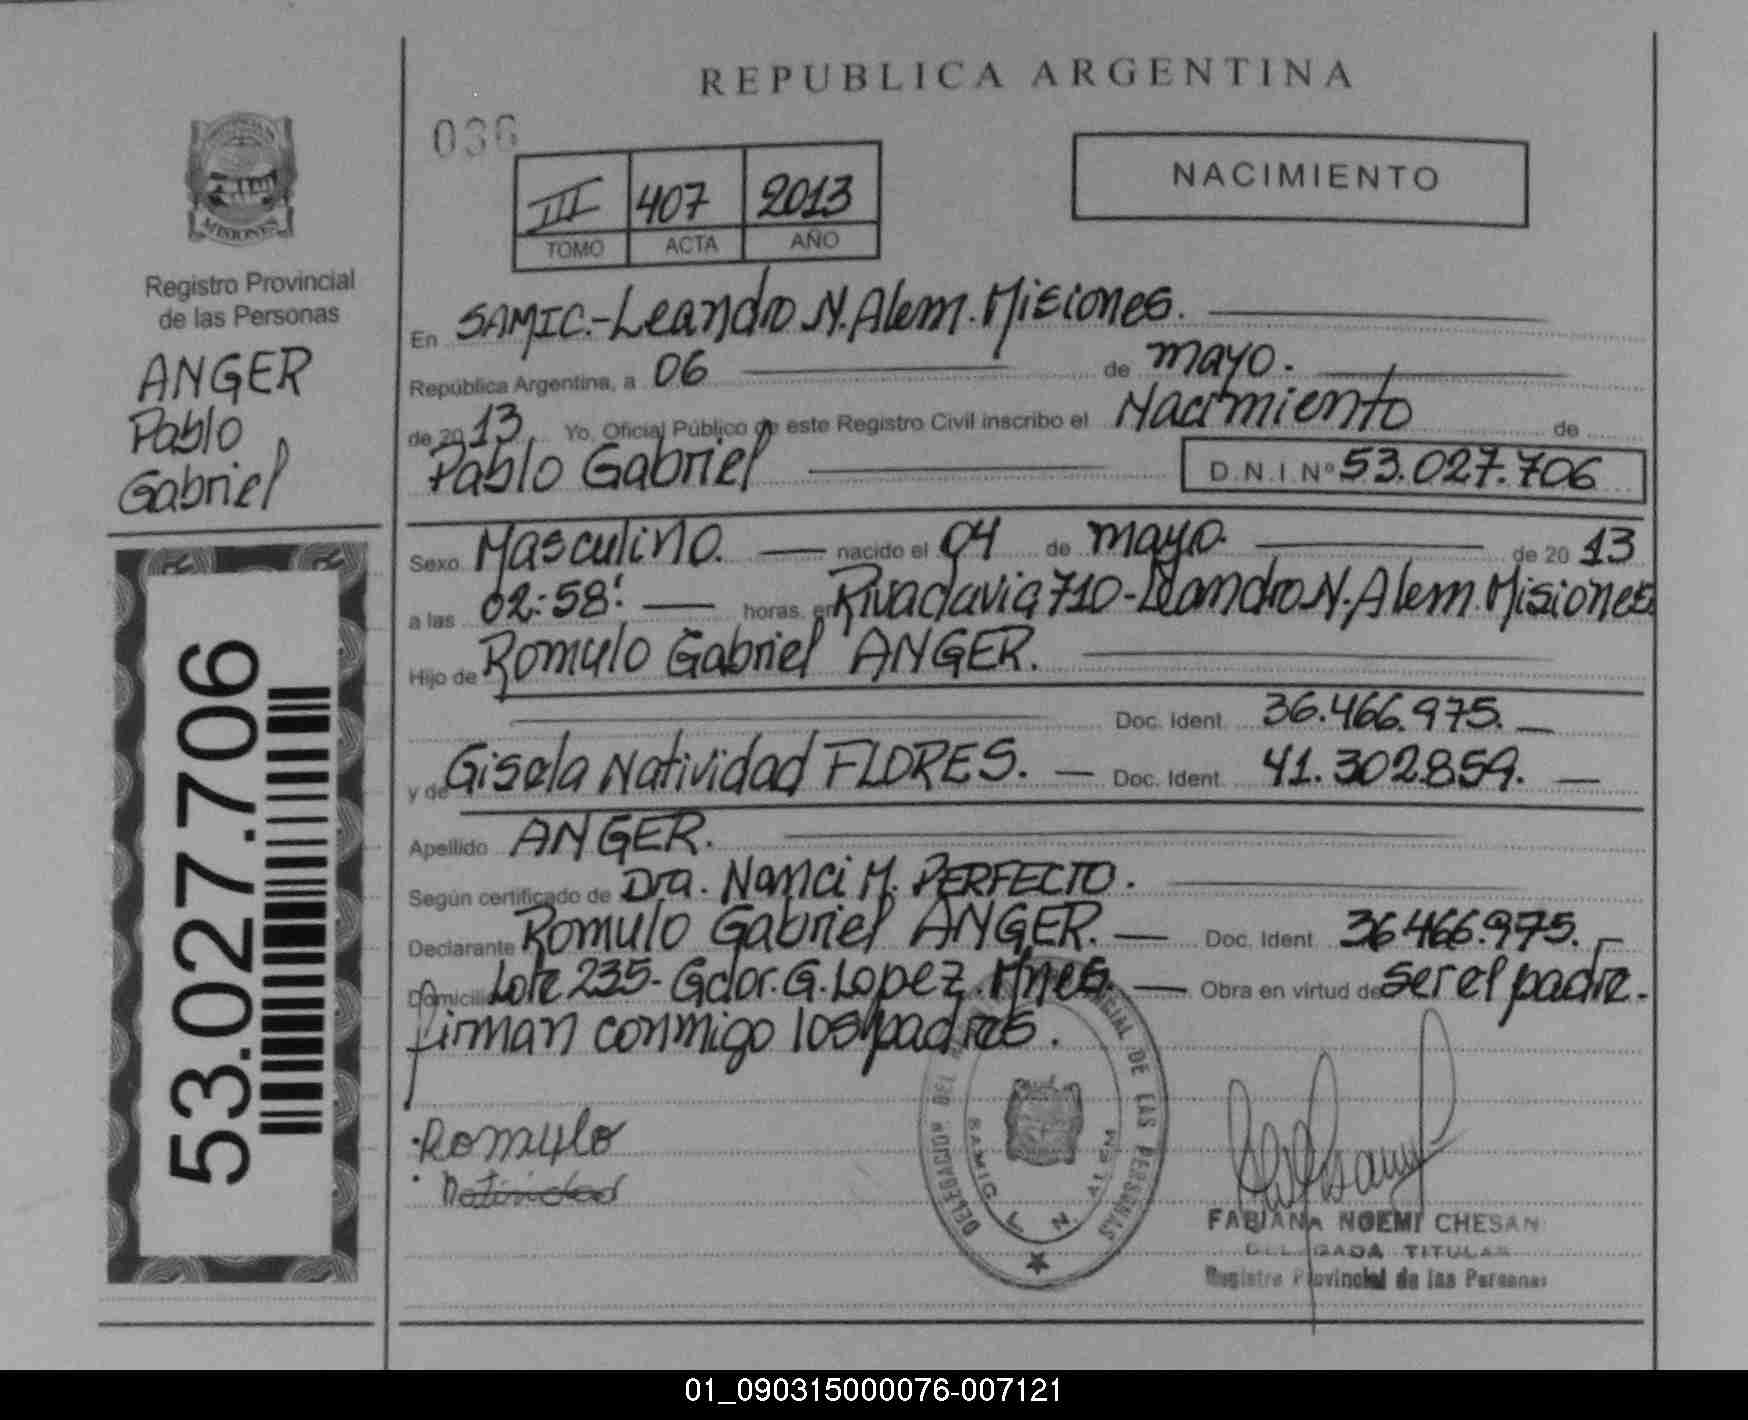 REPUBLICA ARGENTINA
036
NACIMIENTO
III 407 2013
TOMO ACTA AÑO
MISIONES
Registro Provincial
de las Personas
ANGER
Pablo
Gabriel
53.027.706
En SAMIC.-Leandro N. Alem. Misiones.
República Argentina, a 06 de mayo.
de 2013. Yo, Oficial Público de este Registro Civil inscribo el Nacimiento de
Pablo Gabriel D.N.I.Nº 53.027.706
Sexo Masculino. nacido el 04 de mayo. de 20 13
a las 02:58' horas, en Rivadavia 710-Leandro N. Alem. Misiones
Hijo de Romulo Gabriel ANGER.
Doc. Ident. 36.466.975.
y de Gisela Natividad FLORES. Doc. Ident. 41.302.859.
Apellido ANGER.
Según certificado de Dra. Nanci M. PERFECTO.
Declarante Romulo Gabriel ANGER. Doc. Ident 36466.975.
Domicilio Lote 235- Gdor. G. Lopez. Mnes. Obra en virtud de ser el padre.
firman conmigo los padres.
Romulo
Natividad
DE LAS PERSONAS
DELEGACION
SAMIC
L. N. ALEM
FABIANA NOEMI CHESAN
DELEGADA TITULAR
Registro Provincial de las Personas
01_090315000076-007121